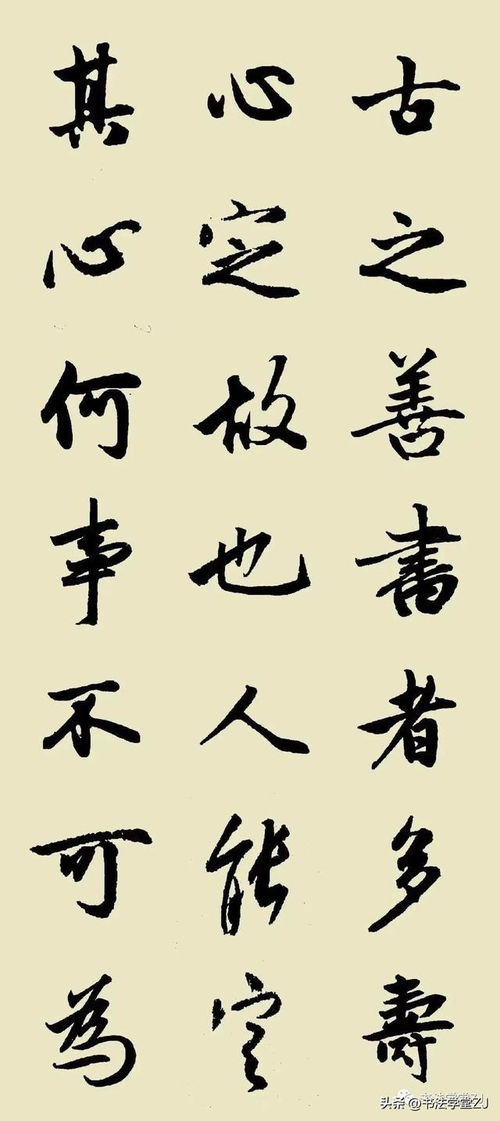 古之善書者多壽
心定故也人能定
其心何事不可為
头条@书法学堂ZJ